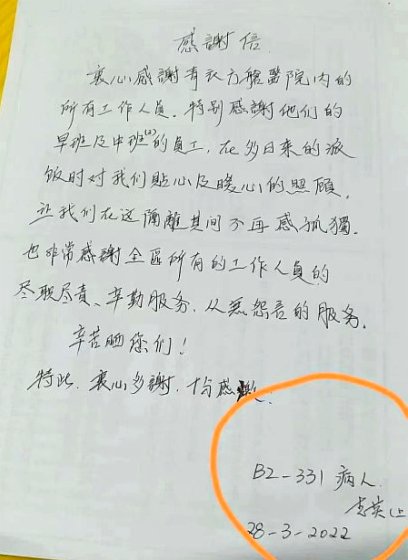 感謝信
衷心感謝青衣方艙醫院內的
所有工作人員. 特别感謝他們的
早班及中班的員工, 在多日来的派
飯时对我们貼心及暖心的照顧,
让我们在这隔離其间不再感孤獨.
也非常感謝全區所有的工作人員的
尽职尽责、辛勤服务, 从無怨言的服务.
辛苦晒您们!
特此. 衷心多謝, 十分感
B2-331 病人.
李英
28-3-2022